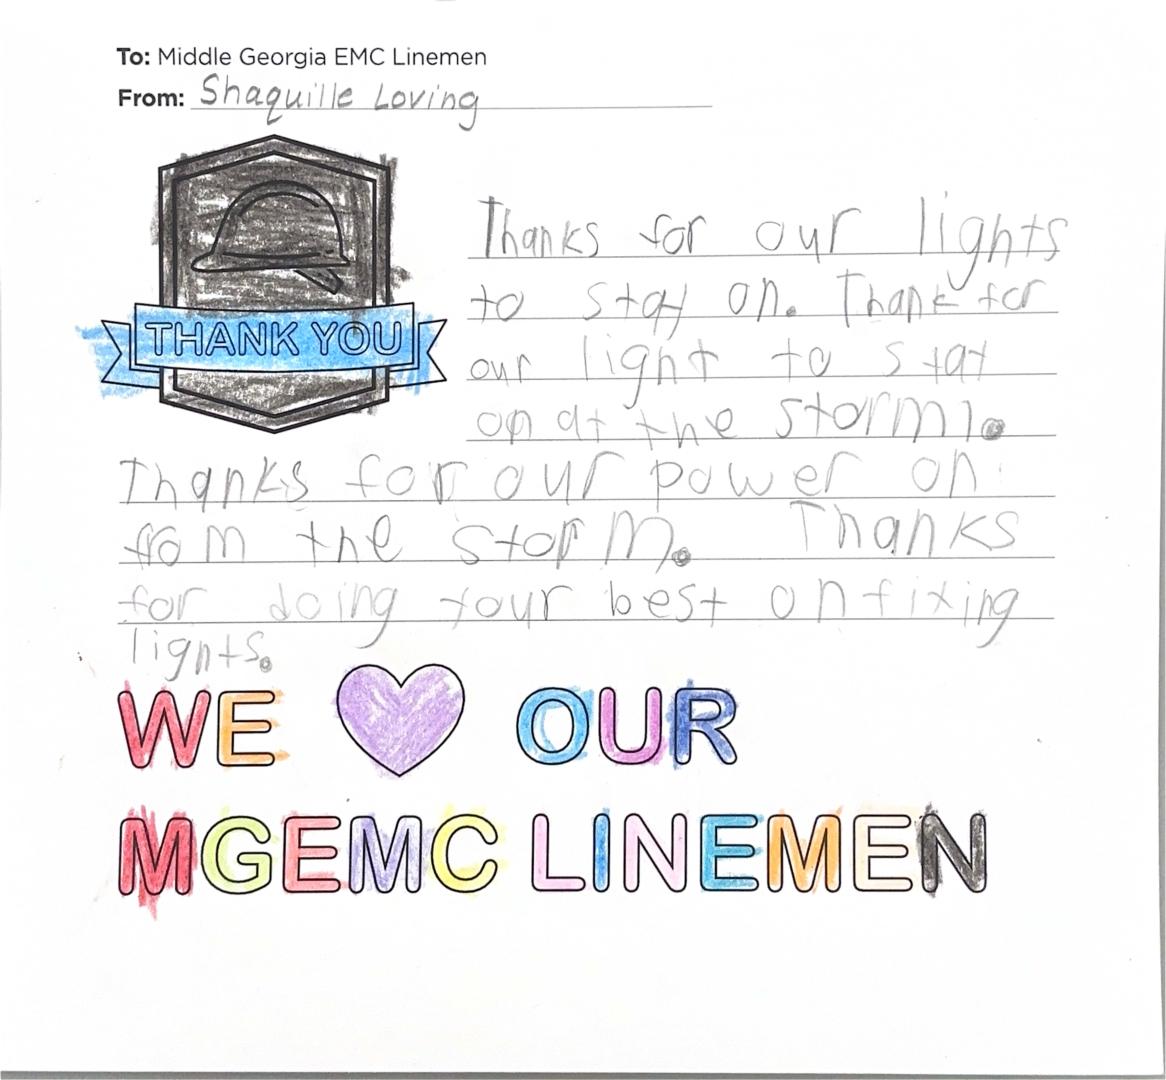 To: Middle Georgia EMC Linemen
From: Shaquille Loving
THANK YOU
Thanks for our lights
to stay on. Thank for
our light to stat
on at the storm.
Thanks for our power on
from the storm. Thanks
for doing your best on fixing
lights.
WE OUR
MGEMC LINEMEN